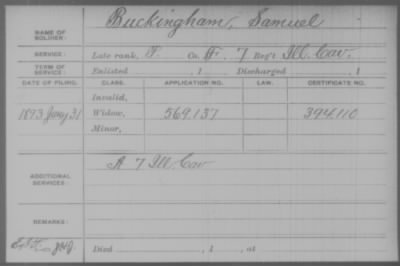 NAME OF SOLDIER: Buckingham, Samuel
SERVICE: Late rank, P. Co. A. 7 Reg't Ill. Cav.
TERM OF SERVICE: Enlisted , 1 Discharged , 1
DATE OF FILING. CLASS. APPLICATION NO. LAW. CERTIFICATE NO.
Invalid,
1893 Jany 31 Widow, 569.137 394.110
Minor,
ADDITIONAL SERVICES: A 7 Ill. Cav
REMARKS:
Died , 1 , at